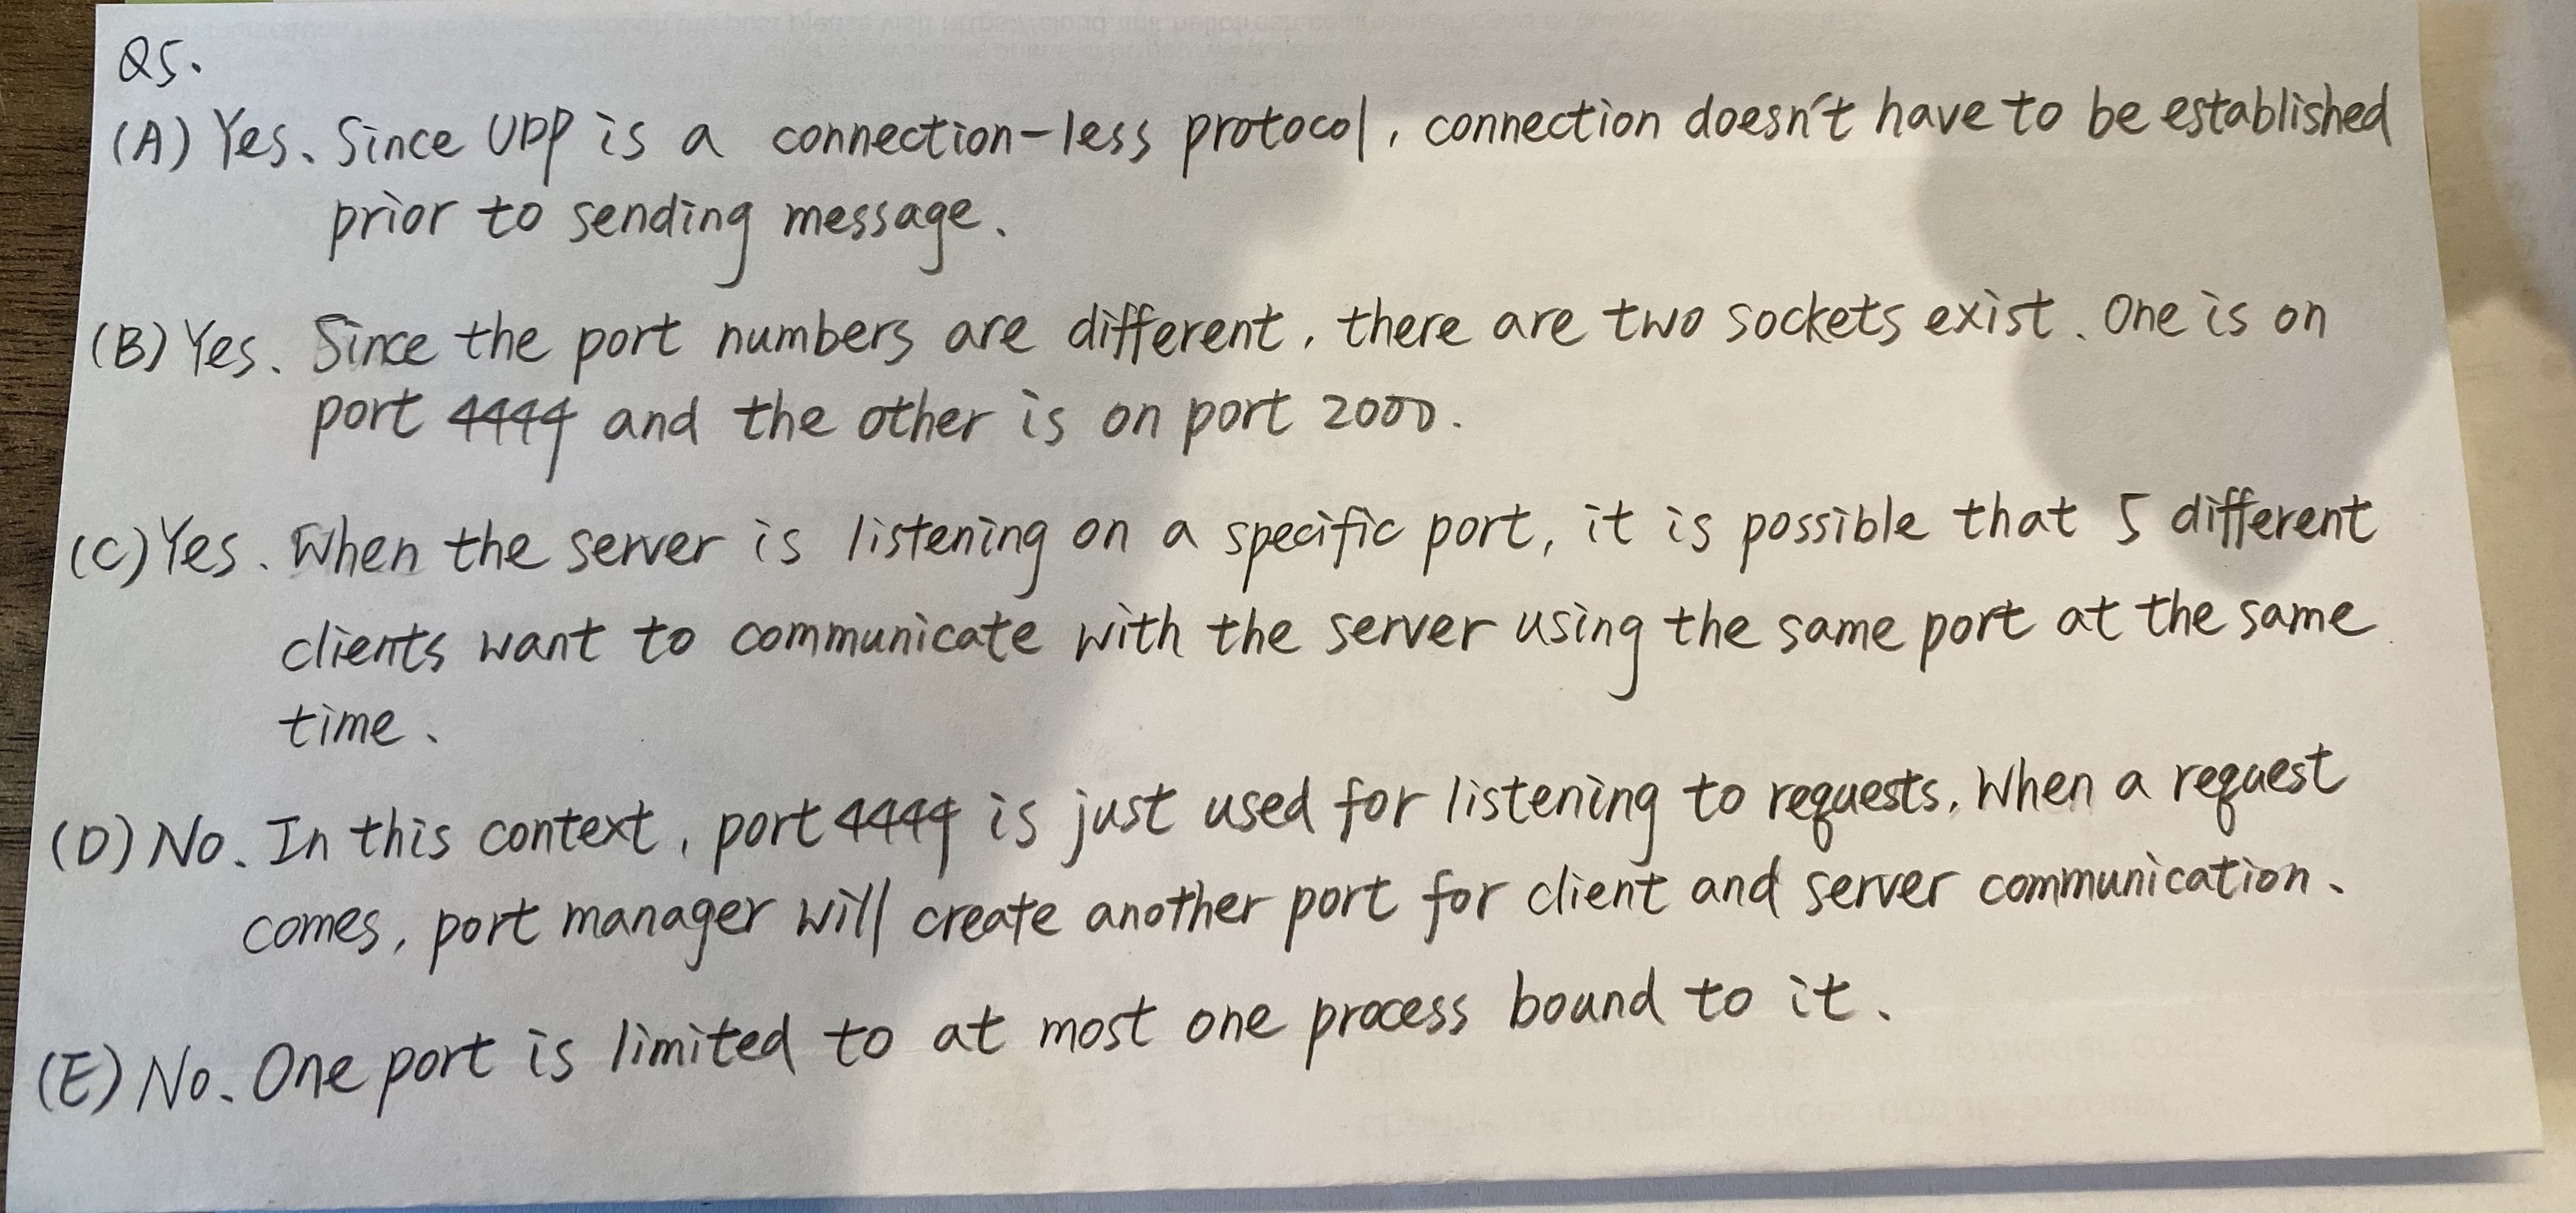 Q5.
(A) Yes. Since UDP is a connection-less protocol, connection doesn't have to be established
prior to sending message.
(B) Yes. Since the port numbers are different, there are two sockets exist. One is on
port 4444 and the other is on port 2000.
(C) Yes. When the server is listening on a specific port, it is possible that 5 different
clients want to communicate with the server using the same port at the same
time.
(D) No. In this context, port 4444 is just used for listening to requests. When a request
comes, port manager will create another port for client and server communication.
(E) No. One port is limited to at most one process bound to it.